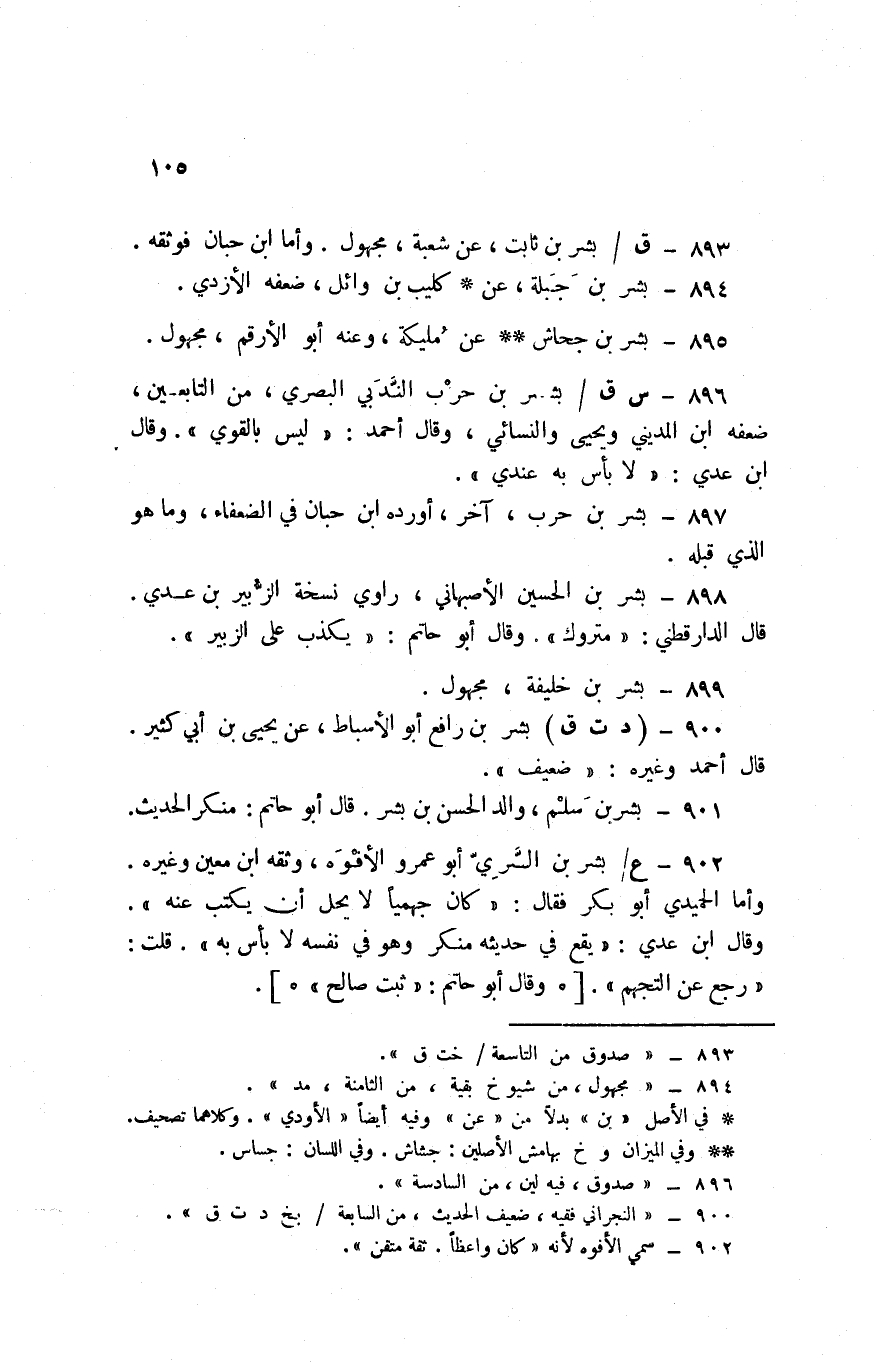 ١٠٥
٨٩٣ ــ ق / بشر بن ثابت ، عن شعبة ، مجهول . وأما ابن حبان فوثقه .
٨٩٤ ــ بشر بن جَبَلة ، عن * كليب بن وائل ، ضعفه الأزدي .
٨٩٥ ــ بشر بن جحاش ** عن مُليكة ، وعنه أبو الأرقم ، مجهول .
٨٩٦ ــ س ق / بشر بن حرْب النَّدَبي البصري ، من التابعين ،
ضعفه ابن المديني ويحيى والنسائي ، وقال أحمد : « ليس بالقوي » . وقال
ابن عدي : « لا بأس به عندي » .
٨٩٧ ــ بشر بن حرب ، آخر ، أورده ابن حبان في الضعفاء ، وما هو
الذي قبله .
٨٩٨ ــ بشر بن الحسين الأصبهاني ، راوي نسخة الزُّبير بن عـدي .
قال الدارقطني : « متروك » . وقال أبو حاتم : « يكذب على الزبير » .
٨٩٩ ــ بشر بن خليفة ، مجهول .
٩٠٠ ــ ( د ت ق ) بشر بن رافع أبو الأسباط ، عن يحيى بن أبي كثير .
قال أحمد وغيره : « ضعيف » .
٩٠١ ــ بشر بن سَلْم ، والد الحسن بن بشر . قال أبو حاتم : منكر الحديث.
٩٠٢ ــ ع / بشر بن السَّرِيّ أبو عمرو الأفْوَه ، وثقه ابن معين وغيره .
وأما الحميدي أبو بكر فقال : « كان جهمياً لا يحل أن يكتب عنه » .
وقال ابن عدي : « يقع في حديثه منكر وهو في نفسه لا بأس به » . قلت :
« رجع عن التجهم » . [ ٥ وقال أبو حاتم : « ثبت صالح » ٥ ] .
٨٩٣ ــ « صدوق من التاسعة / خت ق » .
٨٩٤ ــ « مجهول ، من شيوخ بقية ، من الثامنة ، مد » .
* في الأصل « بن » بدلاً من « عن » وفيه أيضاً « الأودي » . وكلاهما تصحيف.
** وفي الميزان و خ بهامش الأصلين : جثاش . وفي اللسان : جساس .
٨٩٦ ــ « صدوق ، فيه لين ، من السادسة » .
٩٠٠ ــ « النجراني فقيه ، ضعيف الحديث ، من السابعة / بخ د ت ق » .
٩٠٢ ــ سمي الأفوه لأنه « كان واعظاً . ثقة متقن » .